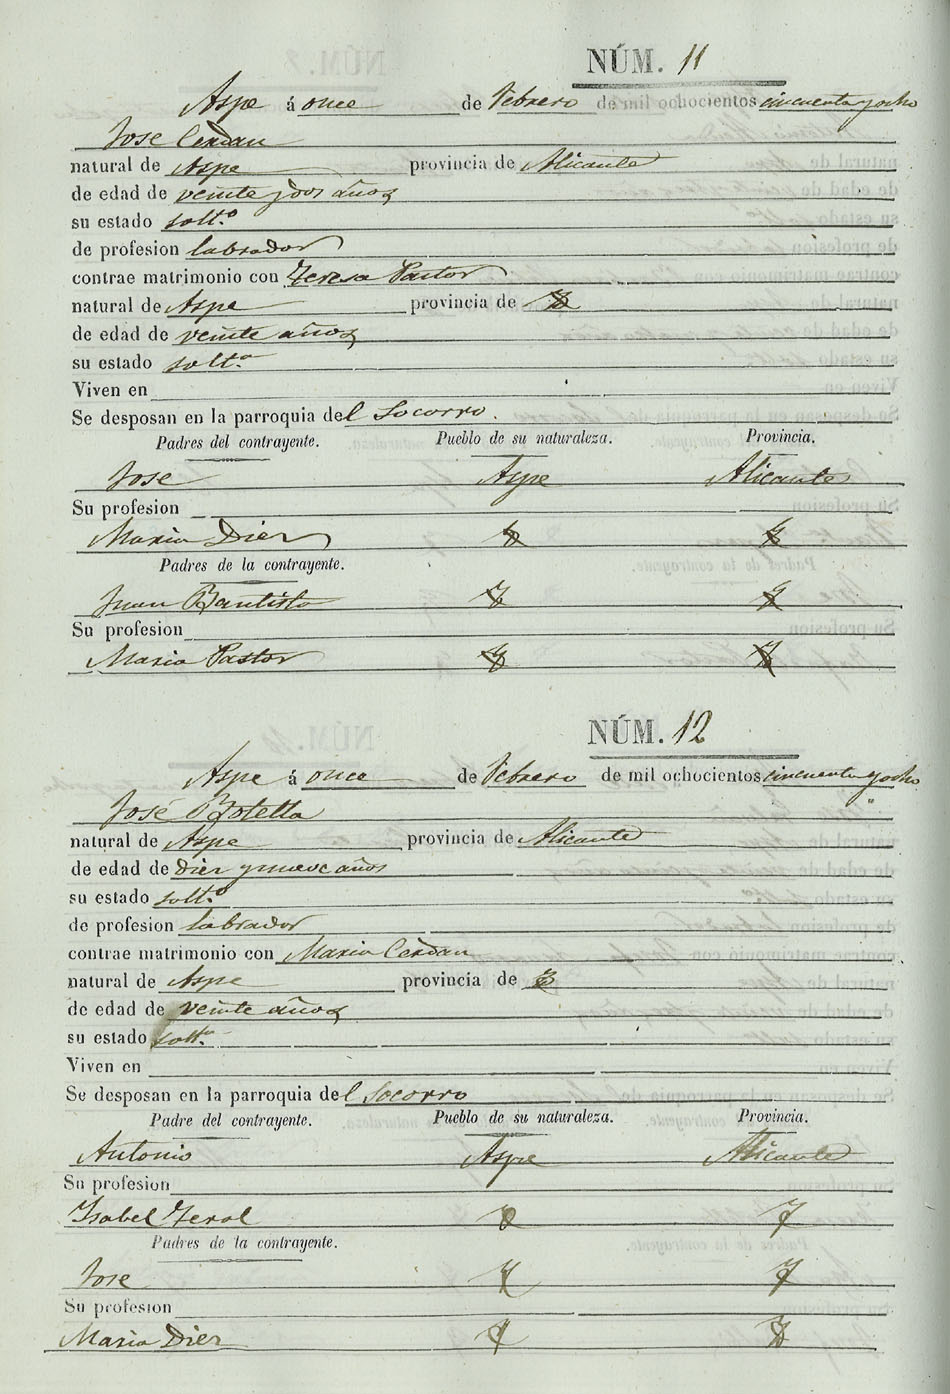 NÚM. 11
Aspe á once de Febrero de mil ochocientos cincuenta y ocho
Jose Cerdan
natural de Aspe provincia de Alicante
de edad de veinte y dos años
su estado solt.º
de profesion labrador
contrae matrimonio con Teresa Pastor
natural de Aspe provincia de
de edad de veinte años
su estado solt.ª
Viven en
Se desposan en la parroquia del Socorro.
Padres del contrayente. Pueblo de su naturaleza. Provincia.
Jose Aspe Alicante
Su profesion
Maria Dier
Padres de la contrayente.
Juan Bautista
Su profesion
Maria Pastor
NÚM. 12
Aspe á once de Febrero de mil ochocientos cincuenta y ocho
José Botella
natural de Aspe provincia de Alicante
de edad de dier y nueve años
su estado solt.º
de profesion labrador
contrae matrimonio con Maria Cerdan
natural de Aspe provincia de
de edad de veinte años
su estado solt.ª
Viven en
Se desposan en la parroquia del Socorro
Padre del contrayente. Pueblo de su naturaleza. Provincia.
Antonio Aspe Alicante
Su profesion
Isabel Terol
Padres de la contrayente.
Jose
Su profesion
Maria Dier